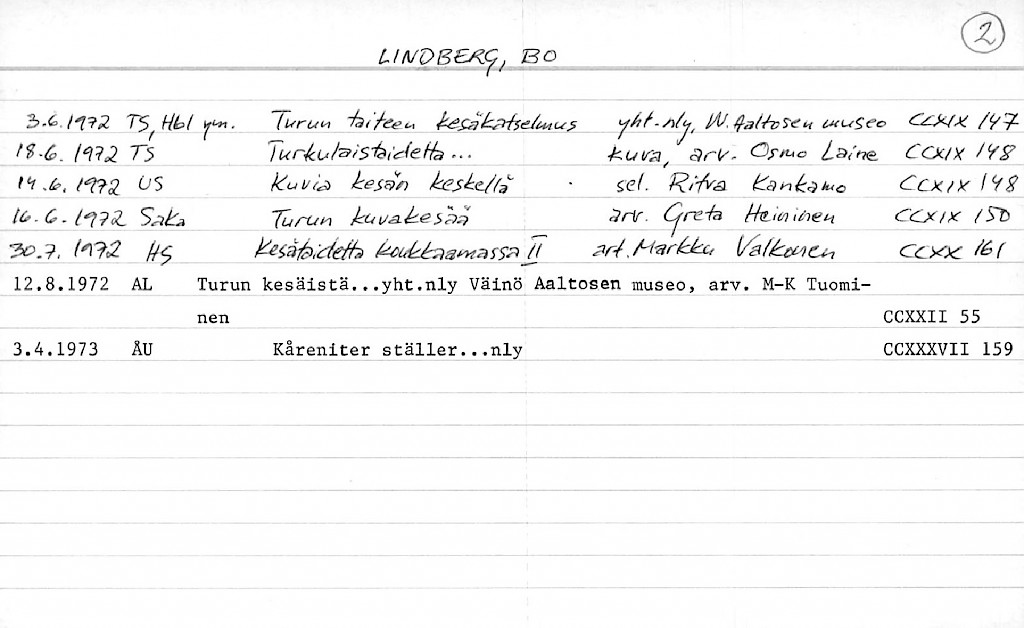 2
LINDBERG, BO
3.6.1972 TS, Hbl ym. Turun taiteen kesäkatselmus yht.nly, W. Aaltosen museo CCXIX 147
18.6.1972 TS Turkulaistaidetta... kuva, arv. Osmo Laine CCXIX 148
14.6.1972 US Kuvia kesän keskellä sel. Ritva Kankamo CCXIX 148
16.6.1972 SaKa Turun kuvakesää arv. Greta Heininen CCXIX 150
30.7.1972 HS Kesätaidetta koukkaamassa II art. Markku Valkonen CCXX 161
12.8.1972 AL Turun kesäistä...yht.nly Väinö Aaltosen museo, arv. M-K Tuomi-
nen CCXXII 55
3.4.1973 ÅU Kåreniter ställer...nly CCXXXVII 159